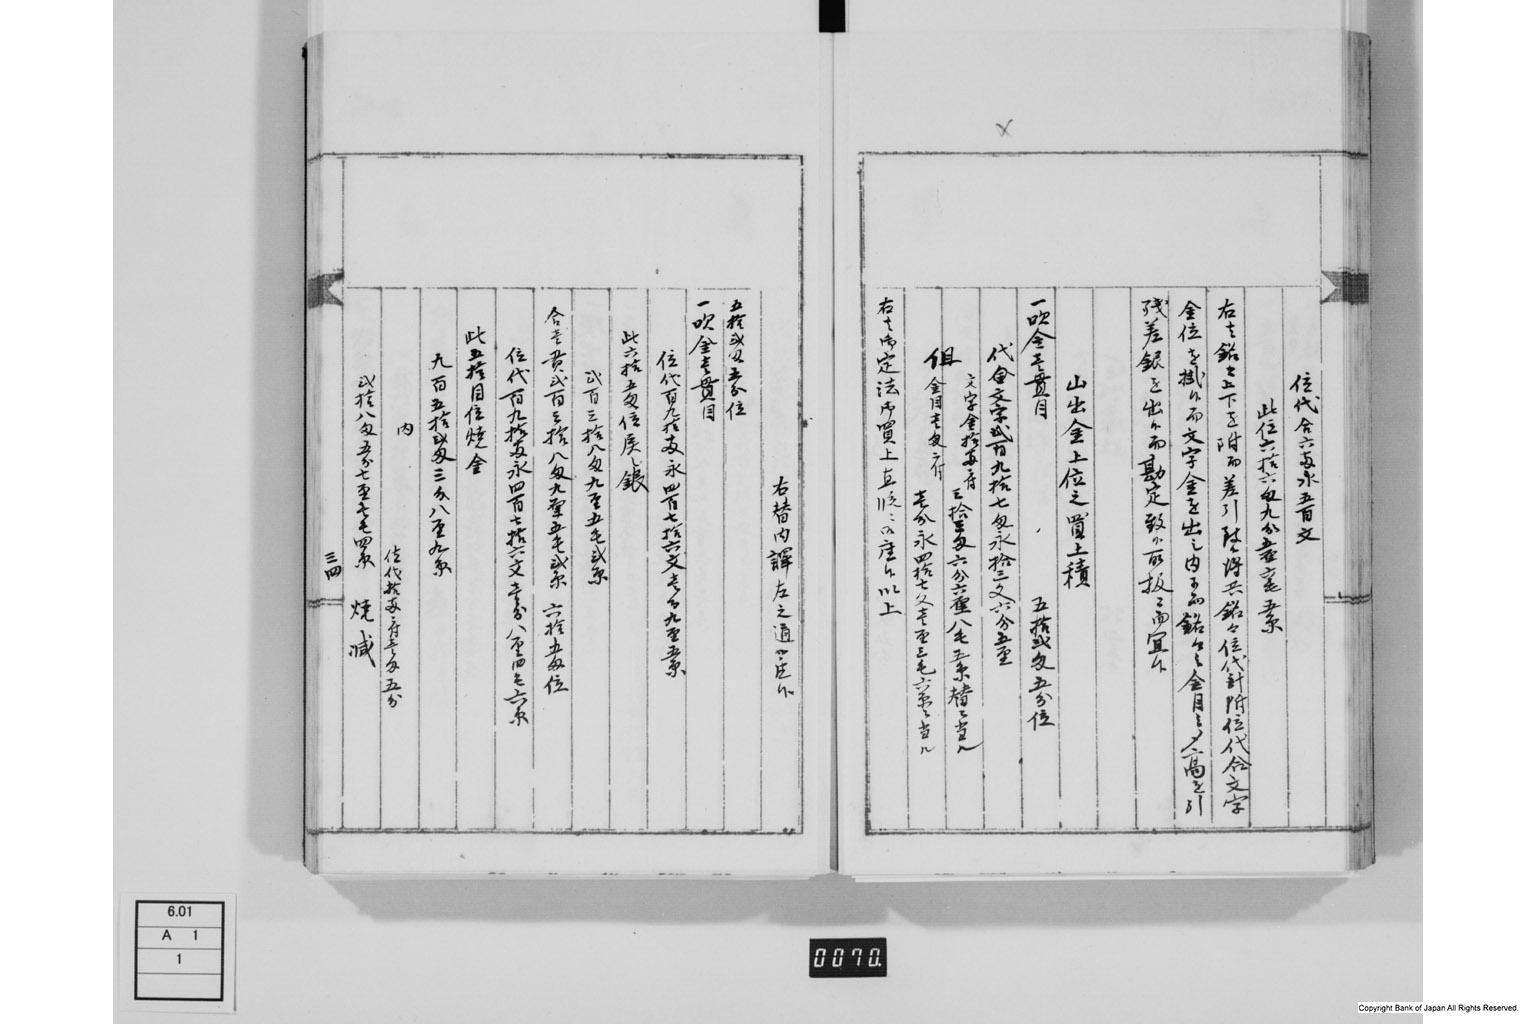 位代合六両永五百文
此位六拾六匁九分五厘
右之銘々上下を附而差引致得共銘々位代計附位代金文字
金位を掛り而文字金を出し内
残差銀を出し而勘定致
山出金上位之買上積
一吹金壱貫目 五拾弐匁五分位
代金文字弐百九拾七匁永拾三文六分五厘
文字金拾両ニ付 三拾三匁六分六厘八毛五糸替ニ当ル
但
金目壱匁ニ付 壱分永四拾七文壱厘三毛六糸ニ当ル
右之御定法御買上直段ニ御座候以上
右替内譯左之通御座候
五拾弐匁五分位
一吹金壱貫目
位代百九拾両永四百七拾六文壱分九厘五糸
此六拾五匁位戻し銀
弐百三拾八匁九厘五毛弐糸
合壱貫弐百三拾八匁九厘五毛弐糸 六拾五匁位
位代百九拾両永四百七拾六文壱分八厘四毛六糸
此五拾目位焼金
九百五拾弐匁三分八厘九糸
内
位代拾両ニ付壱匁五分
弐拾八匁五分七厘壱毛四糸 焼減
三四
6.01
A 1
1
0070.
Copyright Bank of Japan All Rights Reserved.